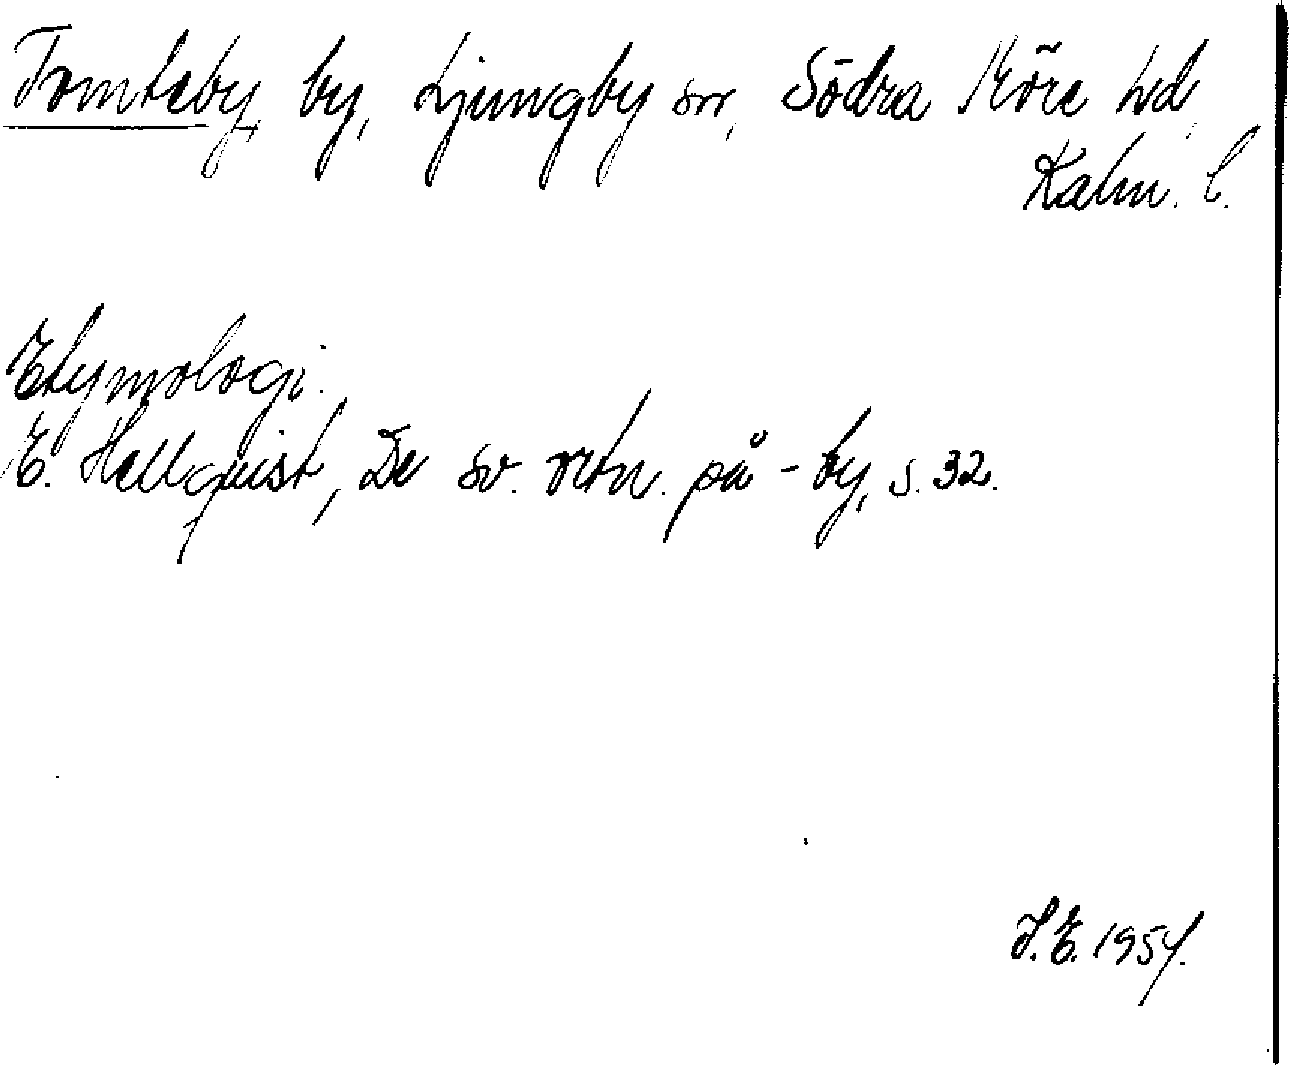 Tomteby, by, Ljungby sn, Södra Möre hd,
Kalm. l.
Etymologi.
E. Hellquist, De sv. ortn. på -by, s. 32.
J.E. 1954.